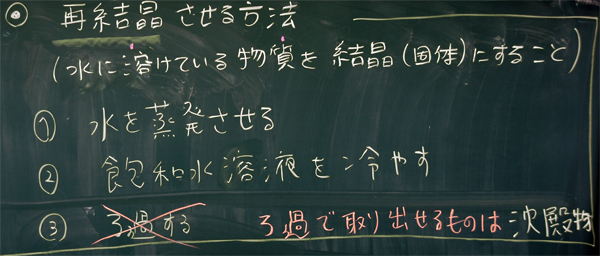 ◎ 再結晶させる方法
(水に溶けている物質を結晶(固体)にすること)
① 水を蒸発させる
② 飽和水溶液を冷やす
③ ろ過する ろ過で取り出せるものは沈殿物